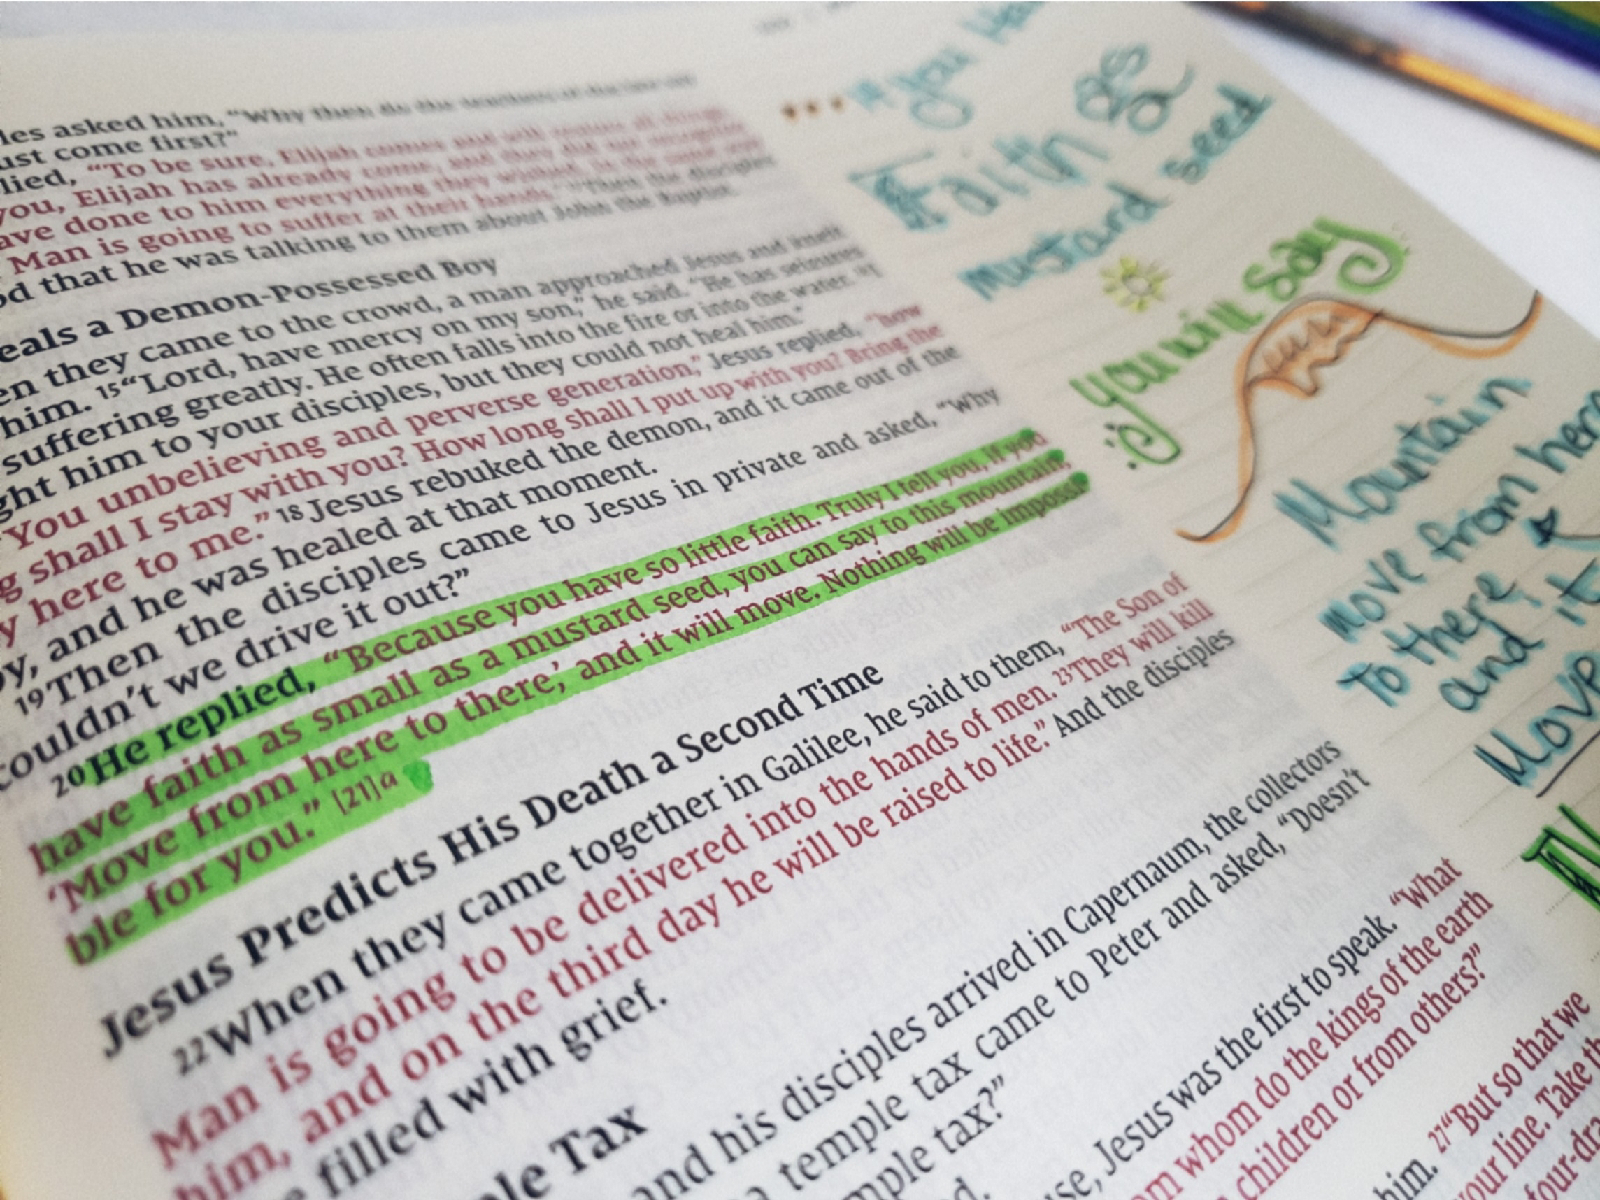 les asked him, “Why then do the teachers of the law say
ust come first?”
lied, “To be sure, Elijah comes and will restore all things.
you, Elijah has already come, and they did not recognize
ave done to him everything they wished. In the same way
Man is going to suffer at their hands.” Then the disciples
od that he was talking to them about John the Baptist.
eals a Demon-Possessed Boy
en they came to the crowd, a man approached Jesus and knelt
him. 15“Lord, have mercy on my son,” he said. “He has seizures
suffering greatly. He often falls into the fire or into the water. I
ght him to your disciples, but they could not heal him.”
“You unbelieving and perverse generation,” Jesus replied, “how
g shall I stay with you? How long shall I put up with you? Bring the
y here to me.” 18Jesus rebuked the demon, and it came out of the
oy, and he was healed at that moment.
19Then the disciples came to Jesus in private and asked, “Why
couldn’t we drive it out?”
20He replied, “Because you have so little faith. Truly I tell you, if you
have faith as small as a mustard seed, you can say to this mountain,
‘Move from here to there,’ and it will move. Nothing will be impossi-
ble for you.” [21]a
Jesus Predicts His Death a Second Time
22When they came together in Galilee, he said to them, “The Son of
Man is going to be delivered into the hands of men. 23They will kill
him, and on the third day he will be raised to life.” And the disciples
e filled with grief.
ple Tax
and his disciples arrived in Capernaum, the collectors
a temple tax came to Peter and asked, “Doesn’t
mple tax?”
d.
se, Jesus was the first to speak. “What
om whom do the kings of the earth
children or from others?”
him. 27“But so that we
your line. Take th
four-dra
... if you Ha
Faith as
a
mustard seed
you will say
Mountain
move from here
To there
and it
Move